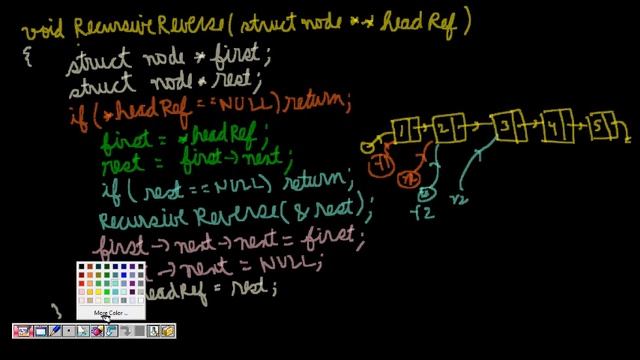 void RecursiveReverse( struct node **headRef)
{ struct node *first;
struct node *rest;
if( *headRef == NULL) return;
first = *headRef;
rest = first→next;
if( rest == NULL) return;
Recursive Reverse( & rest);
first → next → next = first;
→ next = NULL;
headRef = rest;
}
1 2 3 4 5
f1 r1 f2 r2
More Color...